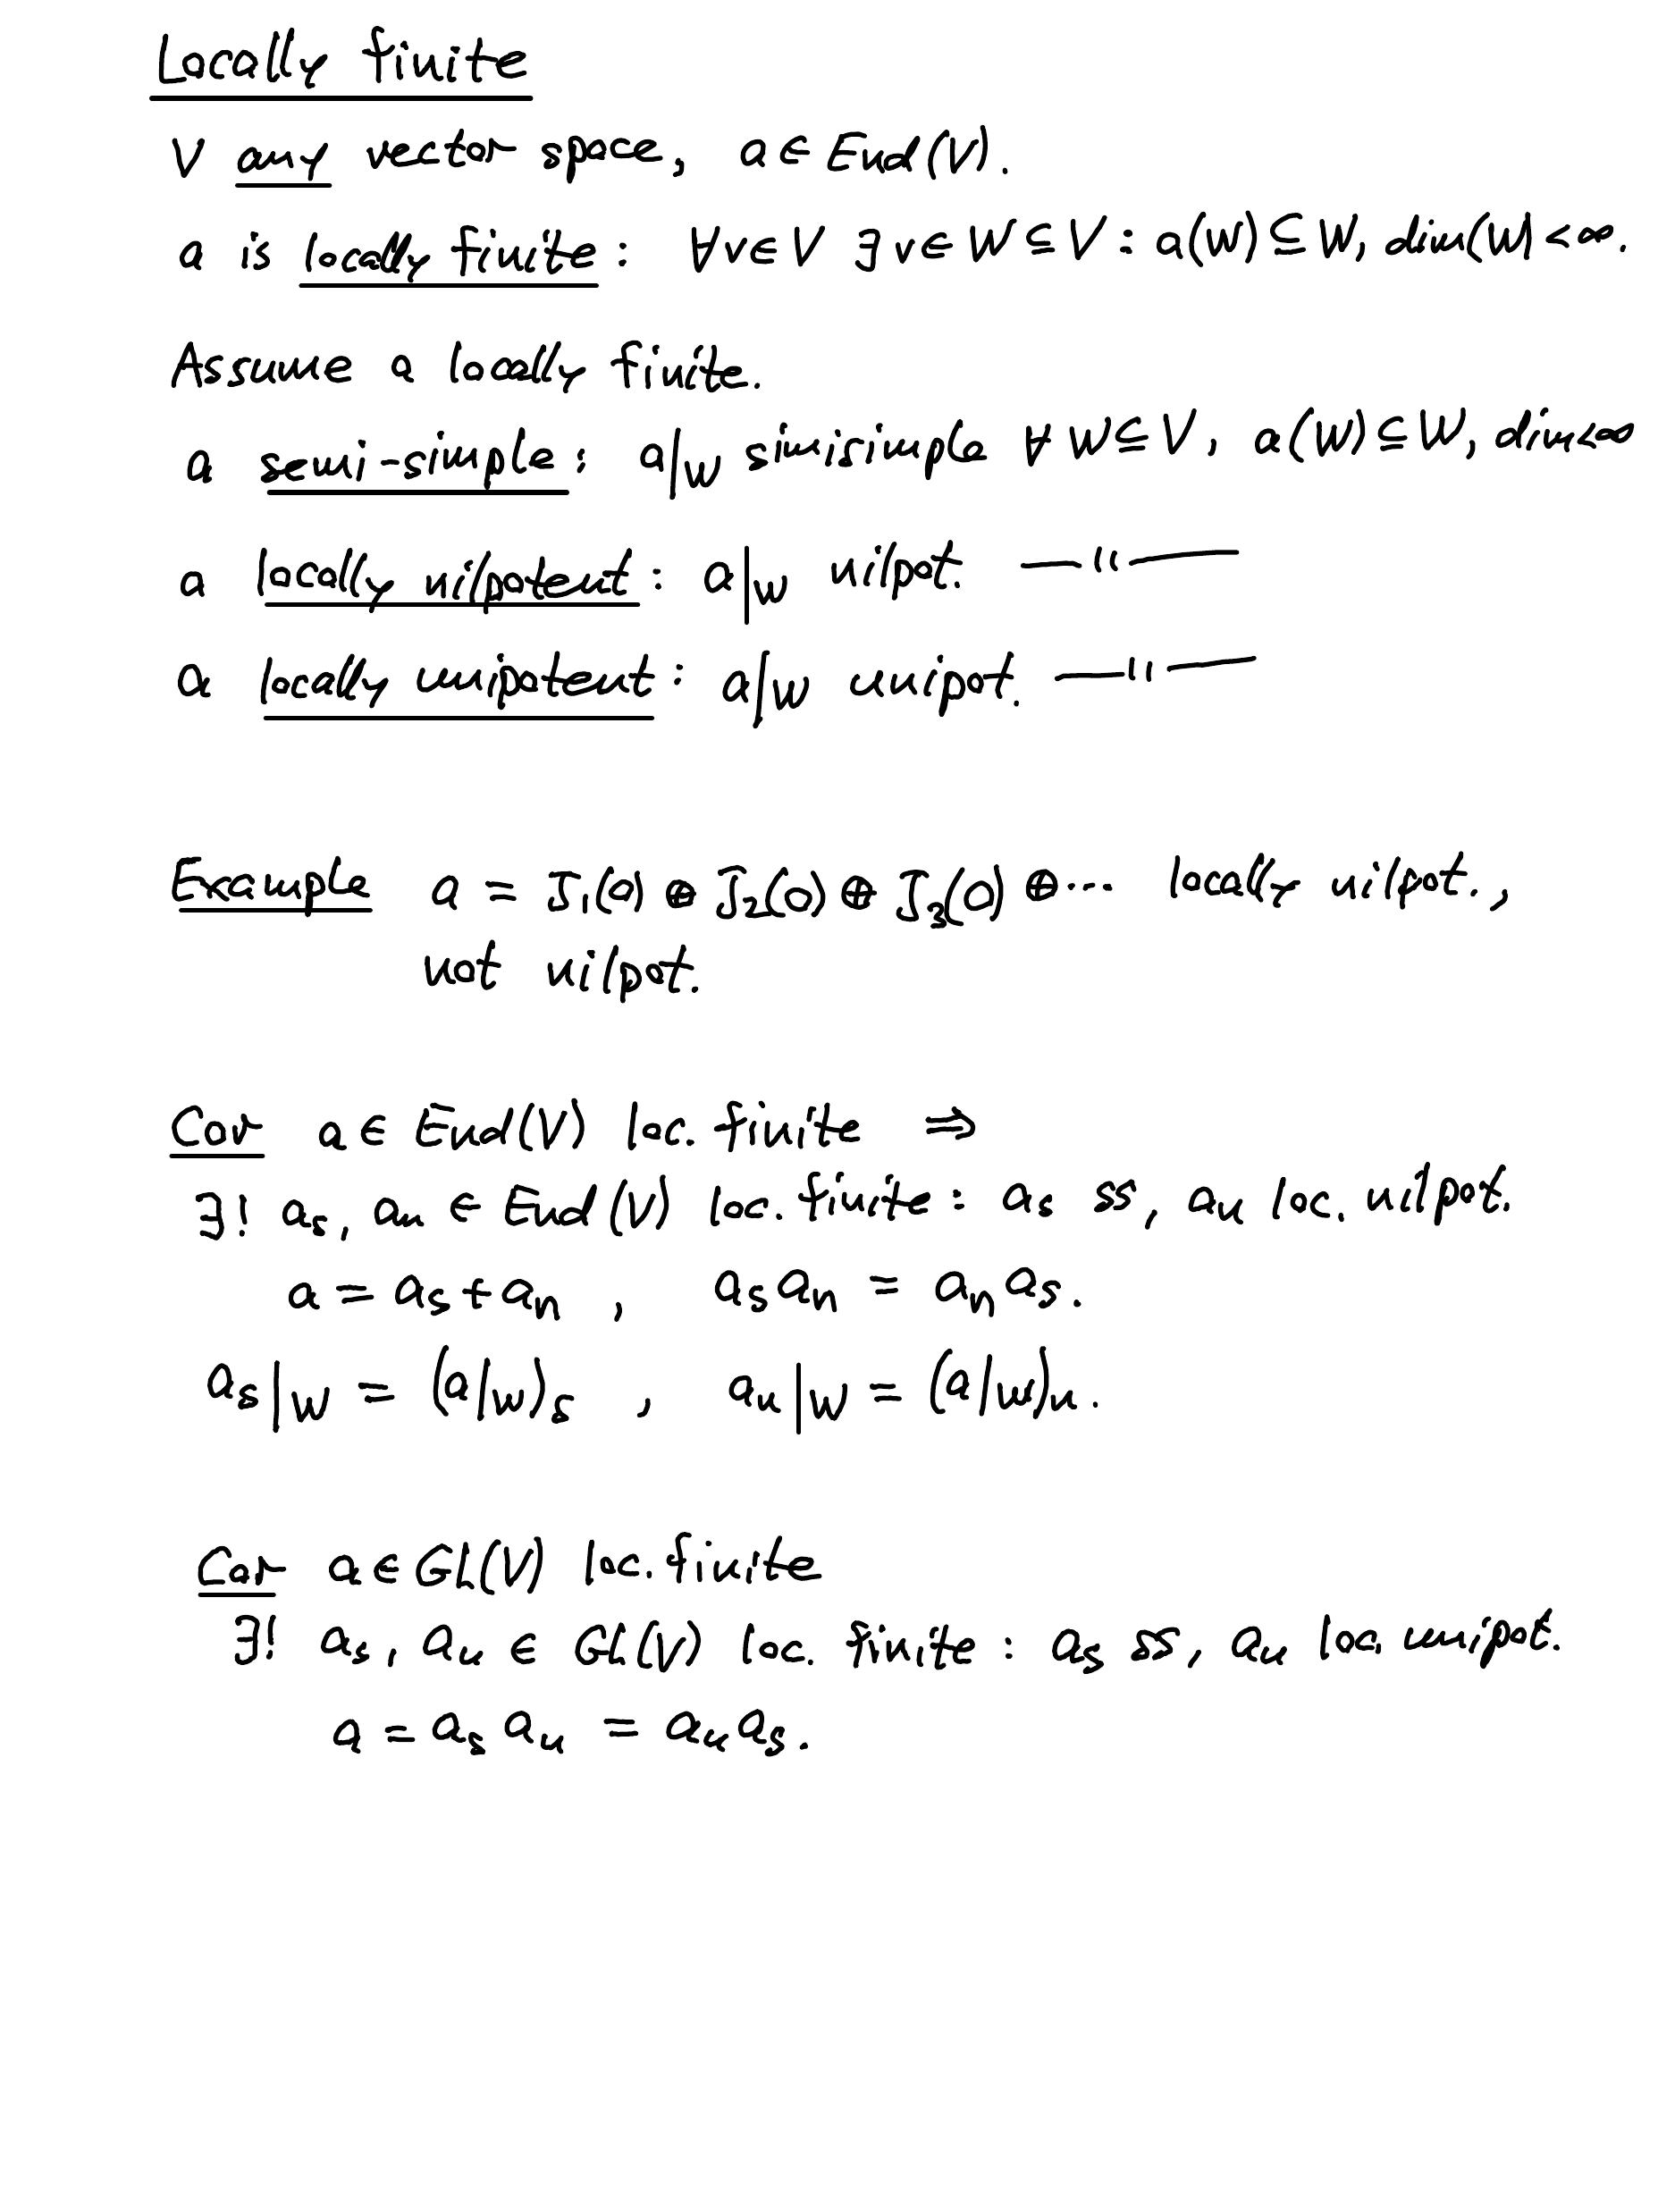 Locally finite
V any vector space, a ∈ End(V).
a is locally finite: ∀v∈V ∃ v∈W⊆V: a(W)⊆W, dim(W)<∞.
Assume a locally finite.
a semi-simple: a|W simisimple ∀ W⊆V, a(W)⊆W, dim<∞
a locally nilpotent: a|W nilpot. —"—
a locally unipotent: a|W unipot. —"—
Example a = J₁(0) ⊕ J₂(0) ⊕ J₃(0) ⊕··· locally nilpot.,
not nilpot.
Cor a ∈ End(V) loc. finite ⇒
∃! aₛ, aₙ ∈ End(V) loc. finite: aₛ ss, aₙ loc. nilpot.
a = aₛ + aₙ , aₛaₙ = aₙaₛ.
aₛ|W = (a|W)ₛ , aₙ|W = (a|W)ₙ.
Cor a ∈ GL(V) loc. finite
∃! aₛ, aᵤ ∈ GL(V) loc. finite: aₛ ss, aᵤ loc. unipot.
a = aₛaᵤ = aᵤaₛ.